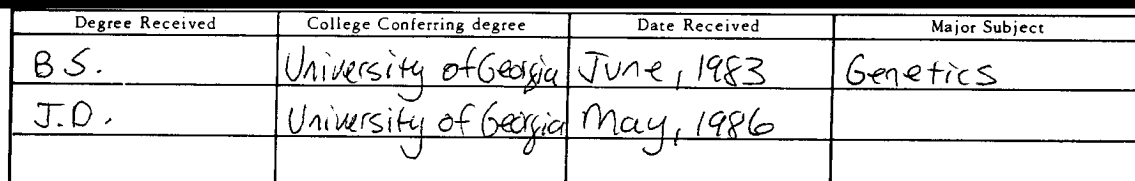 Degree Received College Conferring degree Date Received Major Subject
B S. University of Georgia June, 1983 Genetics
J.D. University of Georgia May, 1986